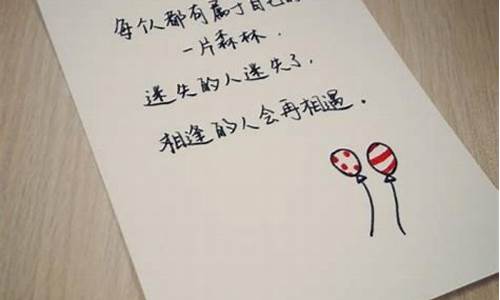 每个人都有属于自己的
一片森林.
迷失的人迷失了,
相逢的人会再相遇。